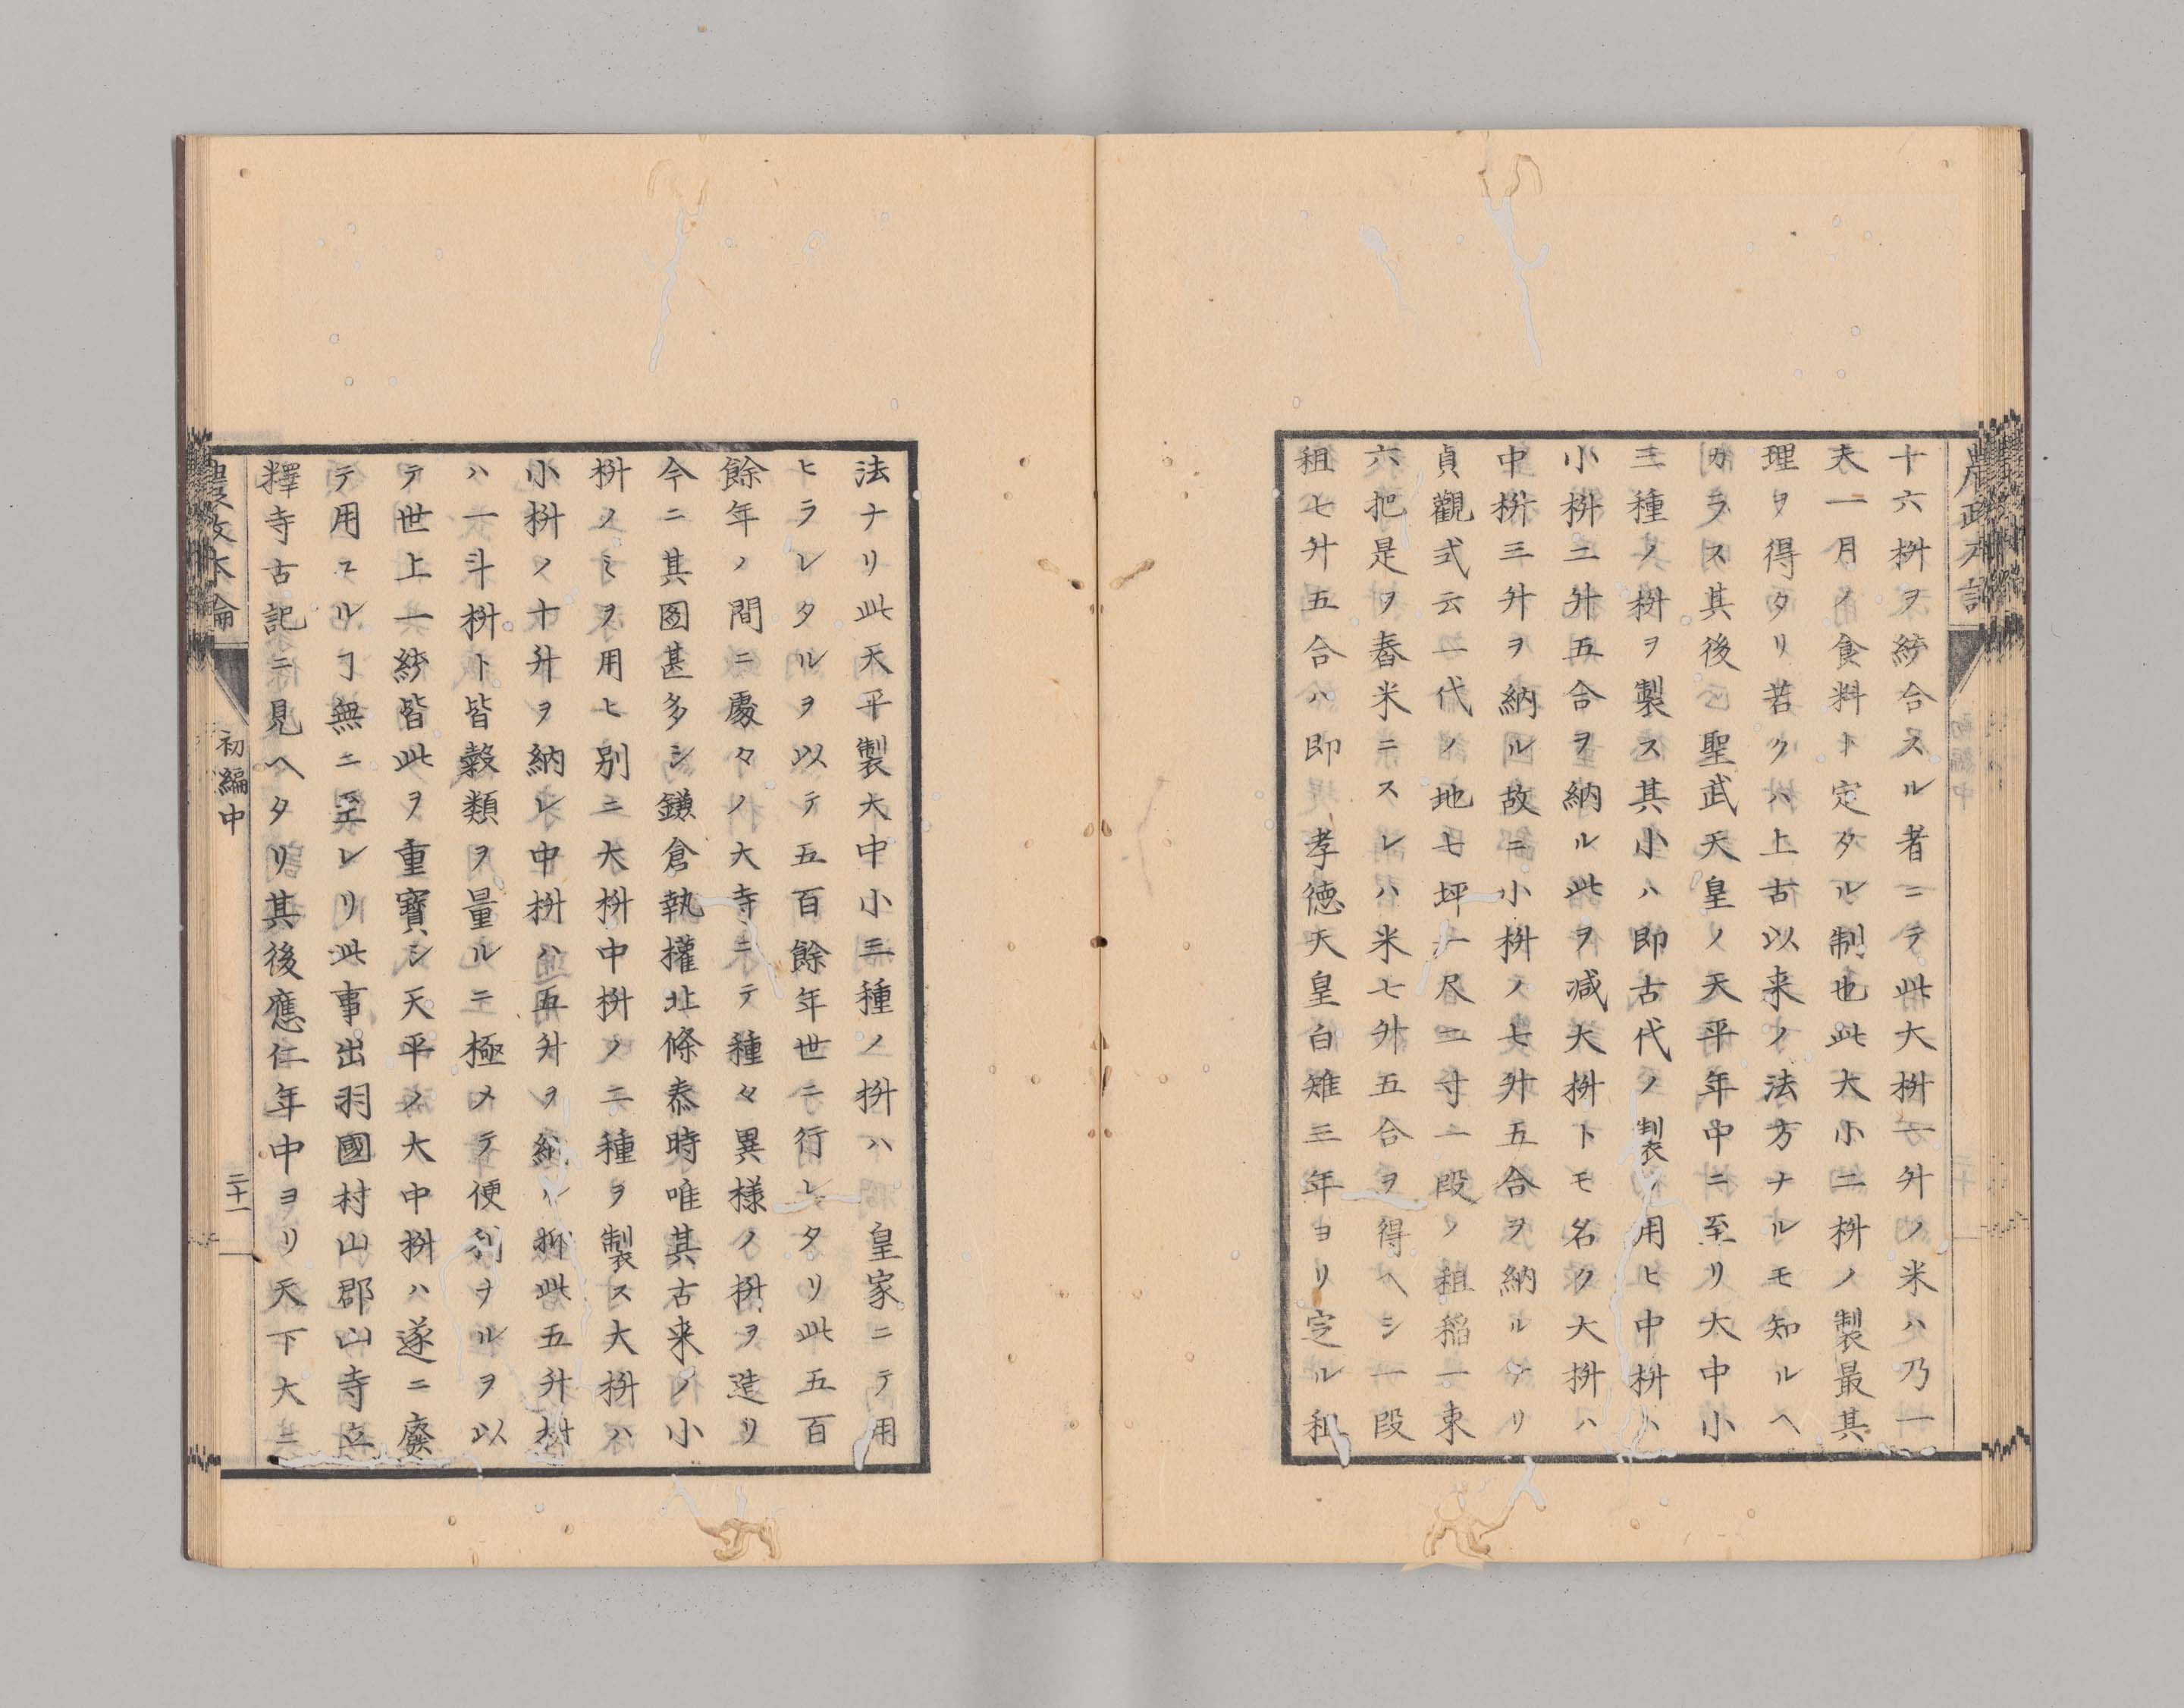 十六枡ヲ紡合スル者ニテ此大枡一升ノ米ハ乃一
夫一月ノ食料ト定タル制也此大小二枡ノ製最其
理ヲ得タリ若クハ上古以来ノ法方ナルモ知ルヘ
カラス其後聖武天皇ノ天平年中ニ至リ大中小
三種ノ枡ヲ製ス其小ハ即古代ノ製ノ用ヒ中枡ハ
小枡二升五合ヲ納ル此ヲ減大枡トモ名ク大枡ハ
中枡三升ヲ納ル故ニ小枡ノ七升五合ヲ納ルナリ
貞觀式云一代ノ地七坪一尺二寸一段ノ租稲一束
六把是ヲ舂米ニスレハ米七升五合ヲ得ヘシ一段
租七升五合ハ即 孝徳天皇白雉三年ヨリ定ル租
法ナリ此天平製大中小三種ノ枡ハ 皇家ニテ用
ヒラレタルヲ以テ五百餘年世ニ行レタリ此五百
餘年ノ間ニ處々ノ大寺ニテ種々異様ノ枡ヲ造リ
今ニ其圖甚多シ鎌倉執權北條泰時唯其古来ノ小
枡ノミヲ用ヒ別ニ大枡中枡ノ二種ヲ製ス大枡ハ
小枡ノ十升ヲ納レ中枡ハ五升ヲ納ル抑此五升枡
ハ一斗枡ト皆穀類ヲ量ルニ極メテ便利ナルヲ以
テ世上一紡皆此ヲ重寶シ天平ノ大中枡ハ遂ニ廢
テ用ユルヿ無ニ至レリ此事出羽國村山郡山寺立
釋寺古記ニ見ヘタリ其後應仁年中ヨリ天下大ニ
初編中
二十一